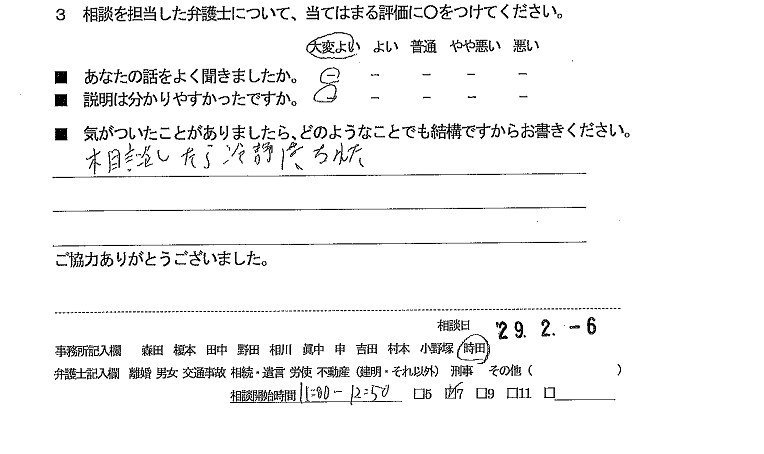 3 相談を担当した弁護士について、当てはまる評価に〇をつけてください。
大変よい よい 普通 やや悪い 悪い
■ あなたの話をよく聞きましたか。 － － － － －
■ 説明は分かりやすかったですか。 － － － － －
■ 気がついたことがありましたら、どのようなことでも結構ですからお書きください。
相談したら冷静に
ご協力ありがとうございました。
相談日 '29. 2. -6
事務所記入欄 森田 榎本 田中 野田 相川 眞中 申 吉田 村本 小野塚 時田
弁護士記入欄 離婚 男女 交通事故 相続・遺言 労使 不動産（建明・それ以外） 刑事 その他（ ）
相談開始時間 11:00－12:50 □5 ☑7 □9 □11 □